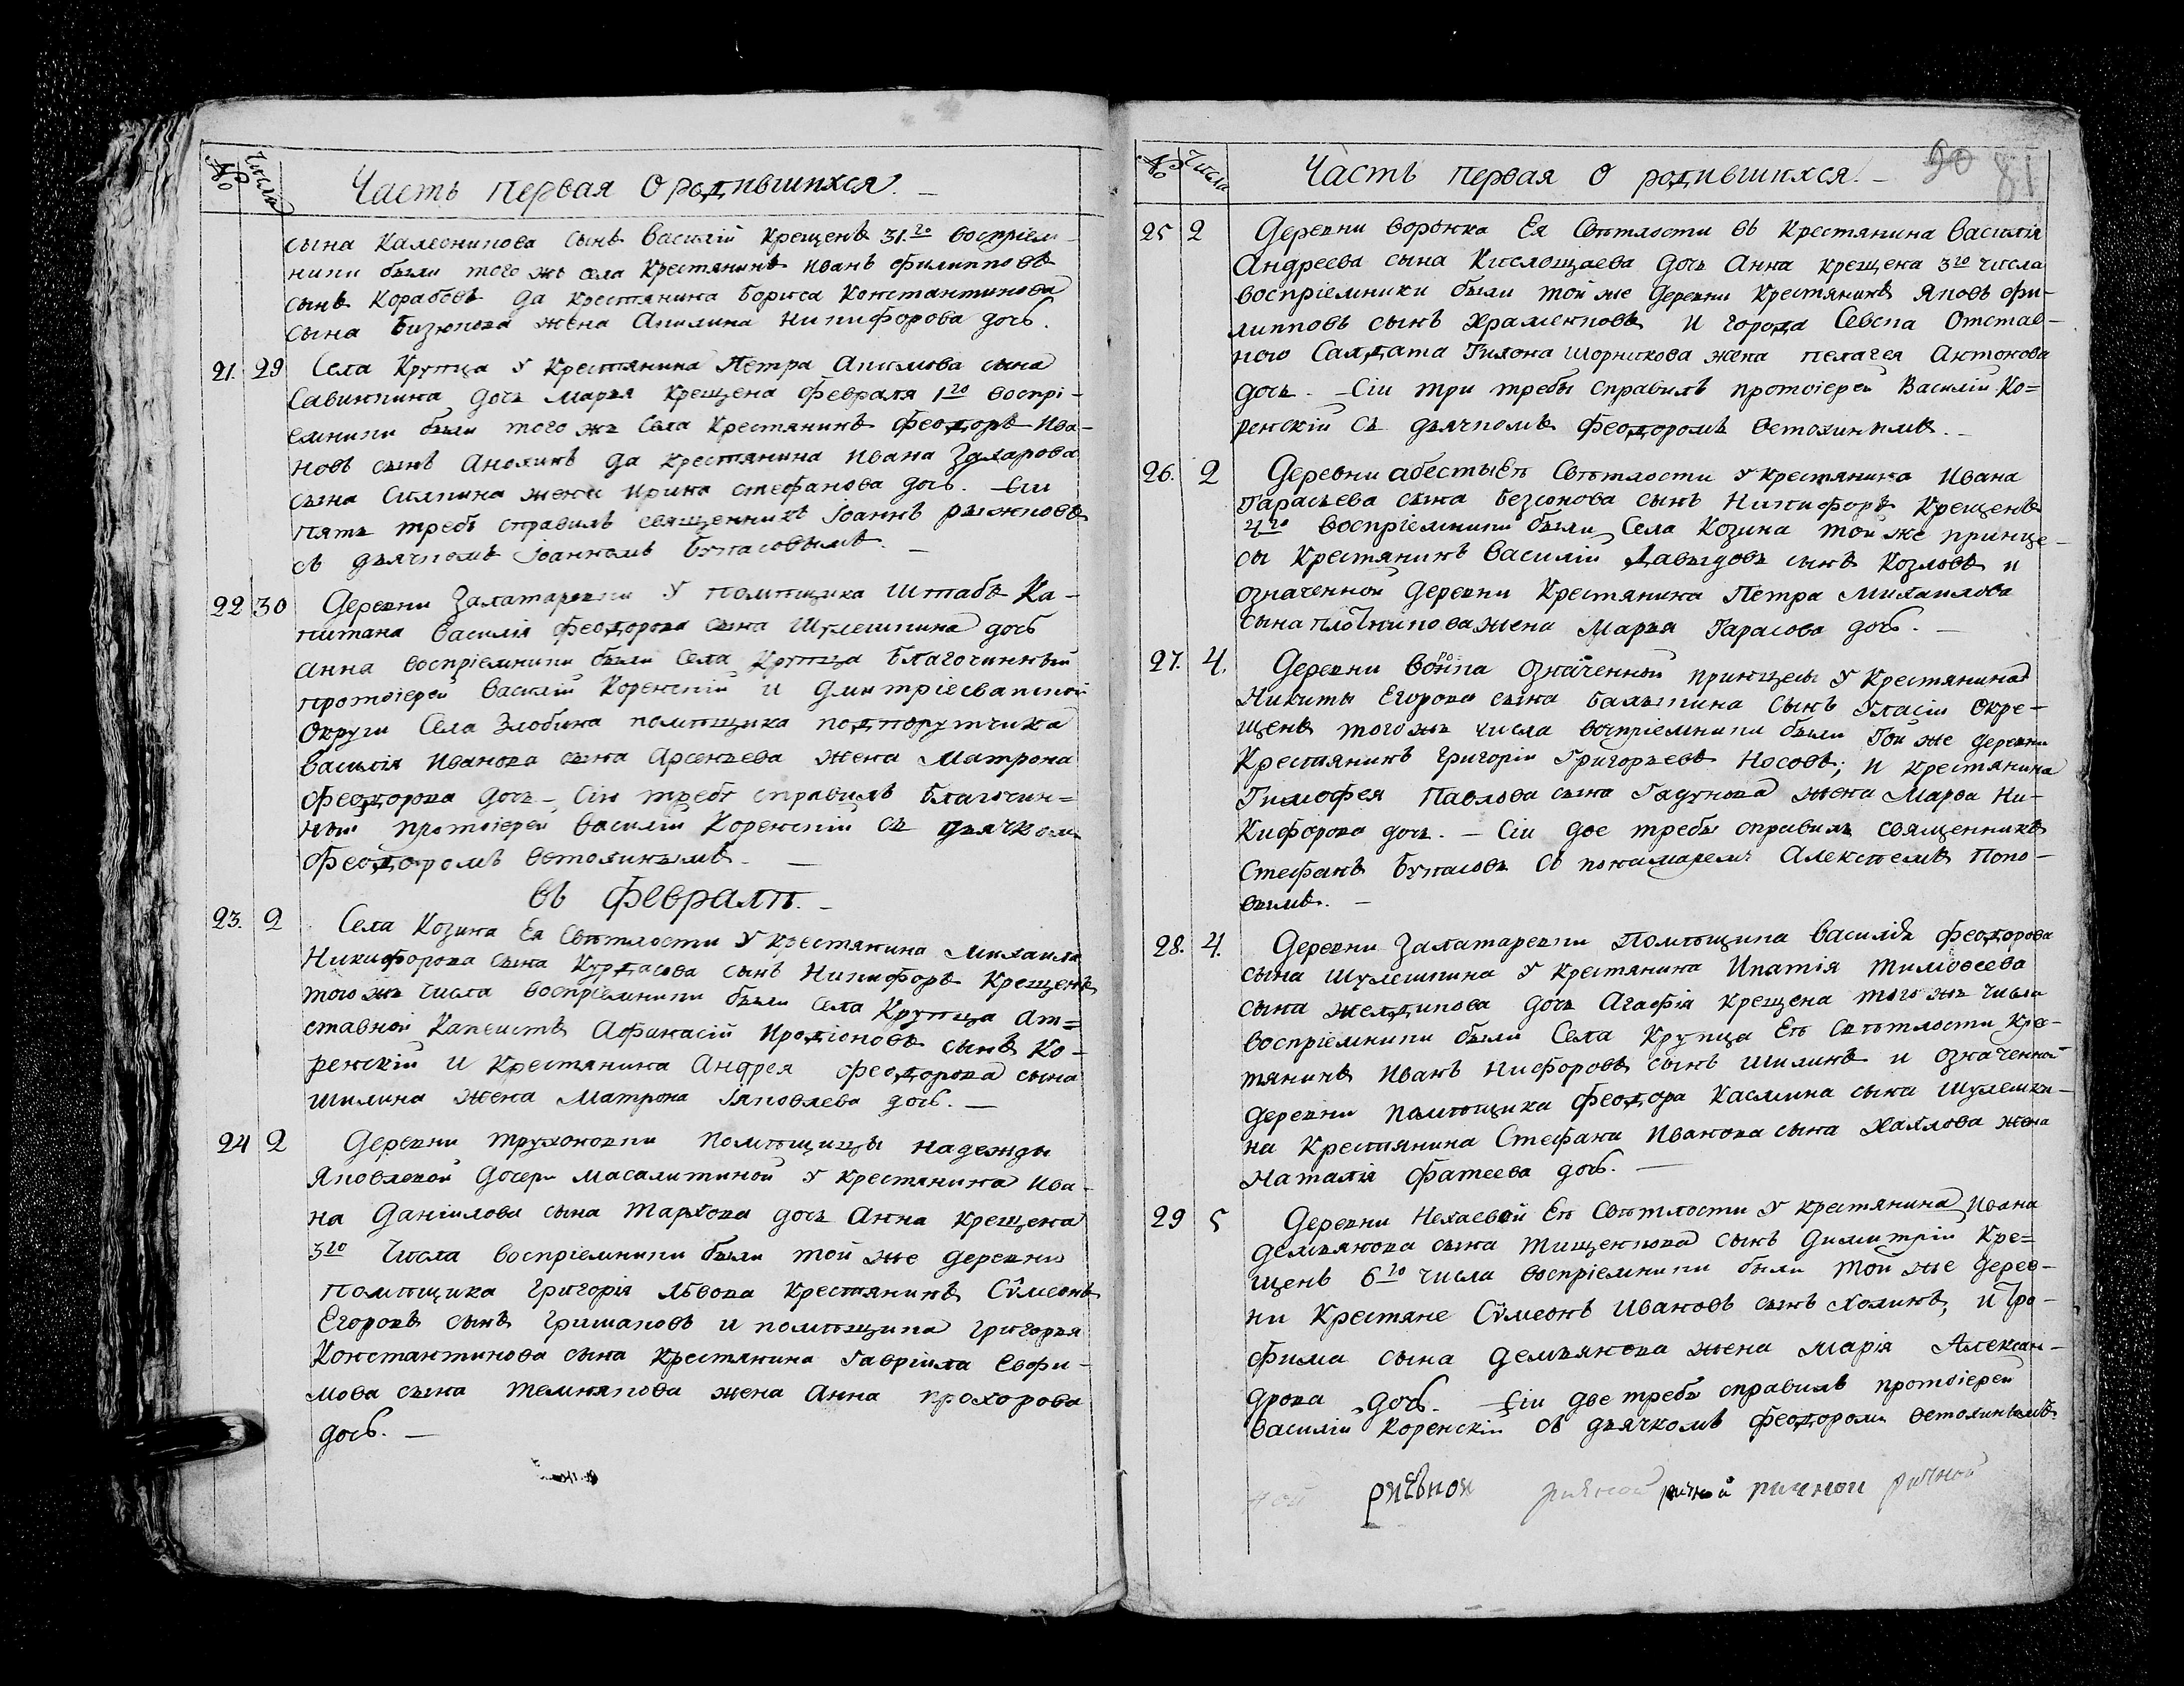 № Числа Часть первая О родившихся. –
сына Калеснинова сынъ Василій Крещенъ 31.го воспріем-
ники были того жъ села Крестянинъ Иванъ Филипповъ
сынъ Корабовъ да крестянина Бориса Константинова
сына Бизюкова жена Акилина Никифорова дочь.
21. 29 Села Крупца У Крестянина Петра Акимова сына
Савинкина дочь Марья Крещена Февраля 1го воспрі-
емники были того жъ Села Крестянинъ Феодоръ Ива-
новъ сынъ Анохинъ да крестянина Ивана Захарова
сына жена Ирина Стефанова дочь. – Сіи
пять требъ справилъ священникъ Іоаннъ Рыжковъ
съ дьячкомъ Іоанномъ Букасовымъ. –
22 30 Деревни Залатаревки У помѣщика Штабъ Ка-
питана Василія Феодорова сына Шулешкина дочь
Анна воспріемники были Села Крупца Благочинный
протоіерей Василій Коренскій и Дмитріесвапской
Округи Села Злобина помѣщика подпорутчика
Василія Иванова сына Арсеньева жена Матрона
Феодорова дочь – Сію требу справилъ благочин=
ный протоіерей Василій Коренскій съ дьячкомъ
Феодоромъ Ветохинымъ. –
Въ Февралѣ. –
23. 2 Села Козина Ея Свѣтлости У крестянина Михаила
Никифорова сына Курдасова сынъ Никифоръ Крещенъ
того жъ числа воспріемники были Села Крупца Ат=
ставной Капеистъ Афанасій Иродіоновъ сынъ Ко-
ренскій И Крестянина Андрея Феодорова сына
Шилина жена Матрона Іяковлева дочь. –
24 2 Деревни Трухоновки Помѣщицы Надежды
Яковлевой дочери Масалитиной У крестянина Ива-
на Даніилова сына Тархова дочь Анна Крещена
3го Числа воспріемники были той же деревни
Помѣщика Григорія Львова Крестянинъ Сѵмеонъ
Егоровъ сынъ Гришаковъ и помѣщика Григорья
Константинова сына Крестянина Гавріила Евфи-
мова сына Темнякова жена Анна Прохорова
дочь. –
№ Числа Часть первая О родившихся. – 90 81
25 2 Деревни Воронка Ея Свѣтлости въ Крестянина Василія
Андреева сына Кислощаева дочь Анна крещена 3го числа
воспріемники были той же деревни Крестянинъ Яковъ Фи-
липповъ сынъ Храменковъ И города Севска Отстав-
ного Салдата Тихона Шорникова жена Пелагея Антонова
дочь. – Сіи три требы справилъ протоіерей Василій Ко=
ренскій Съ дьячкомъ Феодоромъ Ветохинымъ. –
26. 2 Деревни Абесты Еѣ Свѣтлости У крестянина Ивана
Тарасьева сына Безсонова сынъ Никифоръ Крещенъ
4го воспріемники были Села Козина той же принце-
сы Крестянинъ Василій Давыдовъ сынъ Козловъ и
означенной деревни Крестянина Петра Михаилова
сына Плотникова жена Марья Тарасова дочь. –
27. 4. Деревни означенной принцесы У Крестянина
Никиты Егорова сына Балыкина Сынъ Уласій Окре-
щенъ того жъ числа воспріемники были Той же деревни
Крестянинъ Григорій Григорьевъ Носовъ; И крестянина
Тимофея Павлова сына Гадунова жена Марфа Ни-
кифорова дочь. – Сіи две требы справилъ священникъ
Стефанъ Букасовъ Съ понамаремъ Алексѣемъ Попо-
вымъ. –
28. 4. Деревни Залатаревки Помѣщика Василія Феодорова
сына Шулешкина У крестянина Ипатія Тимоѳеева
сына Желдикова дочь Агафія крещена того жъ числа
воспріемники были Села Крупца Еѣ Свѣтлости Кре-
тянинъ Иванъ Нифоровъ сынъ Шилинъ и означенной
деревни помѣщика Феодора Касмина сына Шулешки-
на Крестянина Стефана Иванова сына Хахлова жена
Наталія Фатеева дочь. –
29 5 Деревни Нехаевой Еѣ Свѣтлости У крестянина Ивана
Демьянова сына Тищенкова сынъ Димитрій Кре=
щенъ 6го числа воспріемники были той же дерев-
ни Крестяне Сѵмеонъ Ивановъ сынъ Холинъ, и Тро-
фима сына Демьянова жена Марія Алексан-
дрова дочь. – Сіи две требы справилъ протоіерей
Василій Коренскій съ дьячкомъ Феодоромъ Ветохинымъ